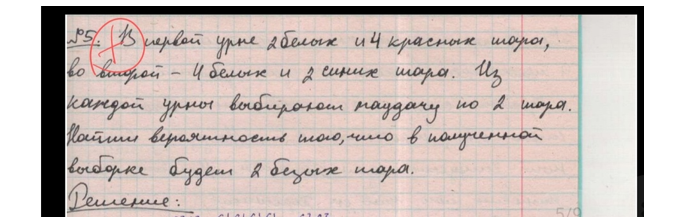 №5. В первой урне 2 белых и 4 красных шара,
во второй - 4 белых и 2 синих шара. Из
каждой урны выбирают наудачу по 2 шара.
Найти вероятность того, что в полученной
выборке будет 2 белых шара.
Решение:
5/9